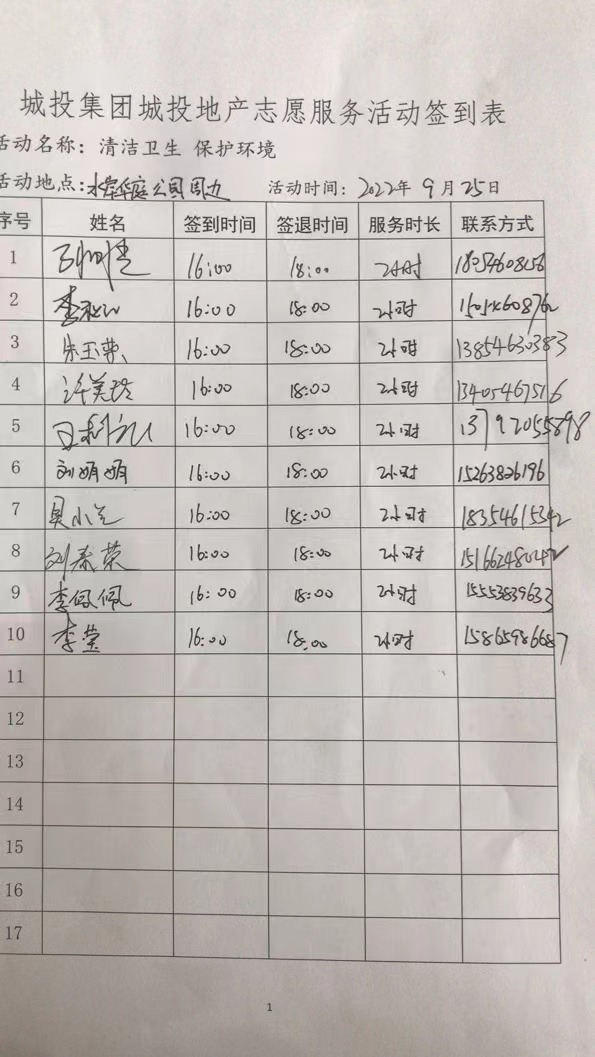 城投集团城投地产志愿服务活动签到表
活动名称：清洁卫生 保护环境
活动地点：水岸华庭公园周边 活动时间：2022年9月25日
序号 姓名 签到时间 签退时间 服务时长 联系方式
1 16:00 18:00 2小时
2 16:00 18:00 2小时
3 朱玉荣 16:00 18:00 2小时 13854630383
4 许美玲 16:00 18:00 2小时 13405467516
5 16:00 18:00 2小时 13792055898
6 刘娟娟 16:00 18:00 2小时 15263826196
7 16:00 18:00 2小时 18354615342
8 刘春荣 16:00 18:00 2小时 15166248042
9 李佩佩 16:00 18:00 2小时 15553839633
10 李莹 16:00 18:00 2小时 15865986687
11
12
13
14
15
16
17
1